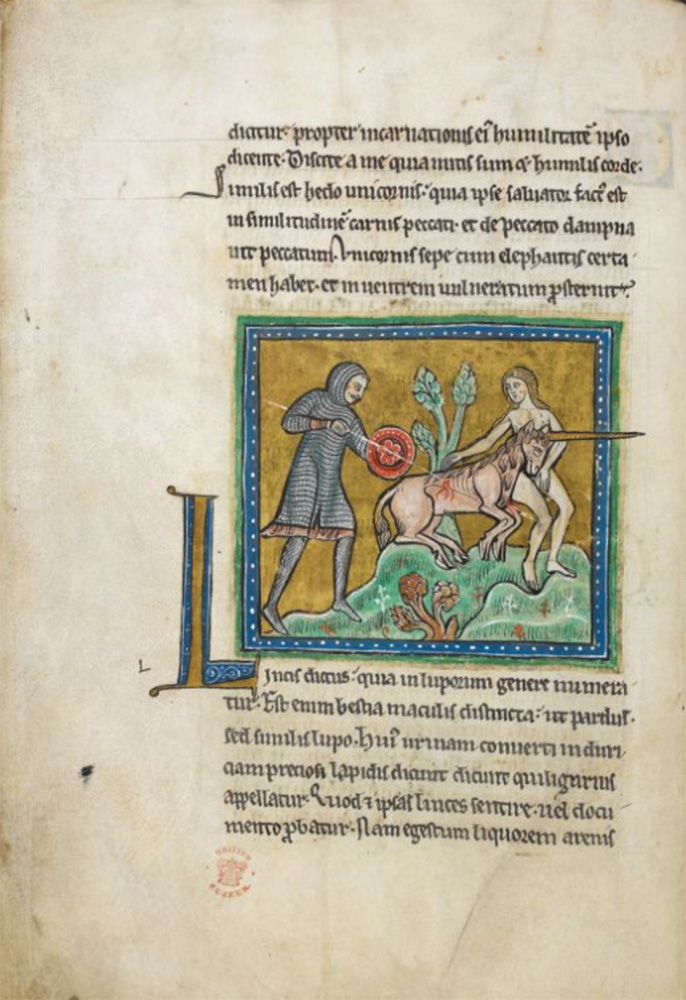 dicitur· propter incarnationis ei' humilitatē ipso
dicente· Discite a me quia mitis sum ⁊ humilis corde·
Similis est hedo unicornis· quia ipse saluator fact' est
in similitudinē carnis peccati· et de peccato dampna
uit peccatum. Vnicornis sepe cum elephantis certa
men habet· et in uentrem uulneratum ꝓsternit·
L
Lincis dictus· quia in luporum genere numera
tur· Est enim bestia maculis distincta· ut pardus·
sed similis lupo· Hui' urinam conuerti in duri
ciam preciosi lapidis dicunt dicunt qui ligurius
appellatur· Quod ⁊ ipsas linces sentire· uel docu
mento ꝓbatur· Nam egestum liquorem arenis